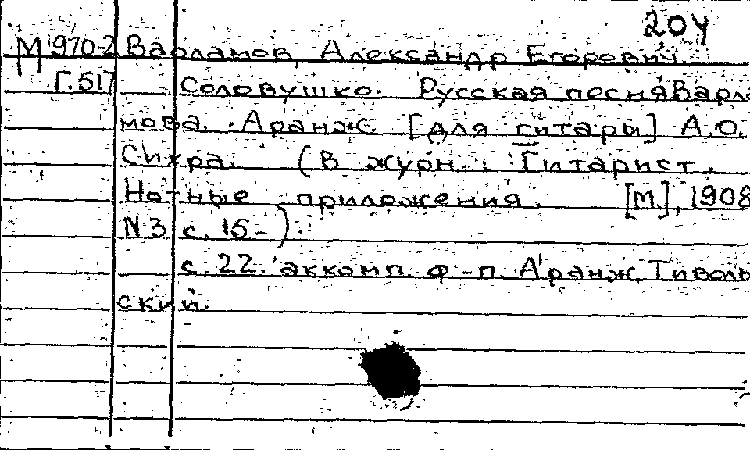 204
М 970-2 Варламов, Александр Егорович.
Г.517 Соловушко. Русская песня Варл
мова. Аранж. [для гитары] А.О.
Сихра. (В журн.: Гитарист.
Нотные приложения. [М.], 1908
N 3 с. 15-).
с. 22. аккомп. ф-п. Аранж. Тиволь
ский.